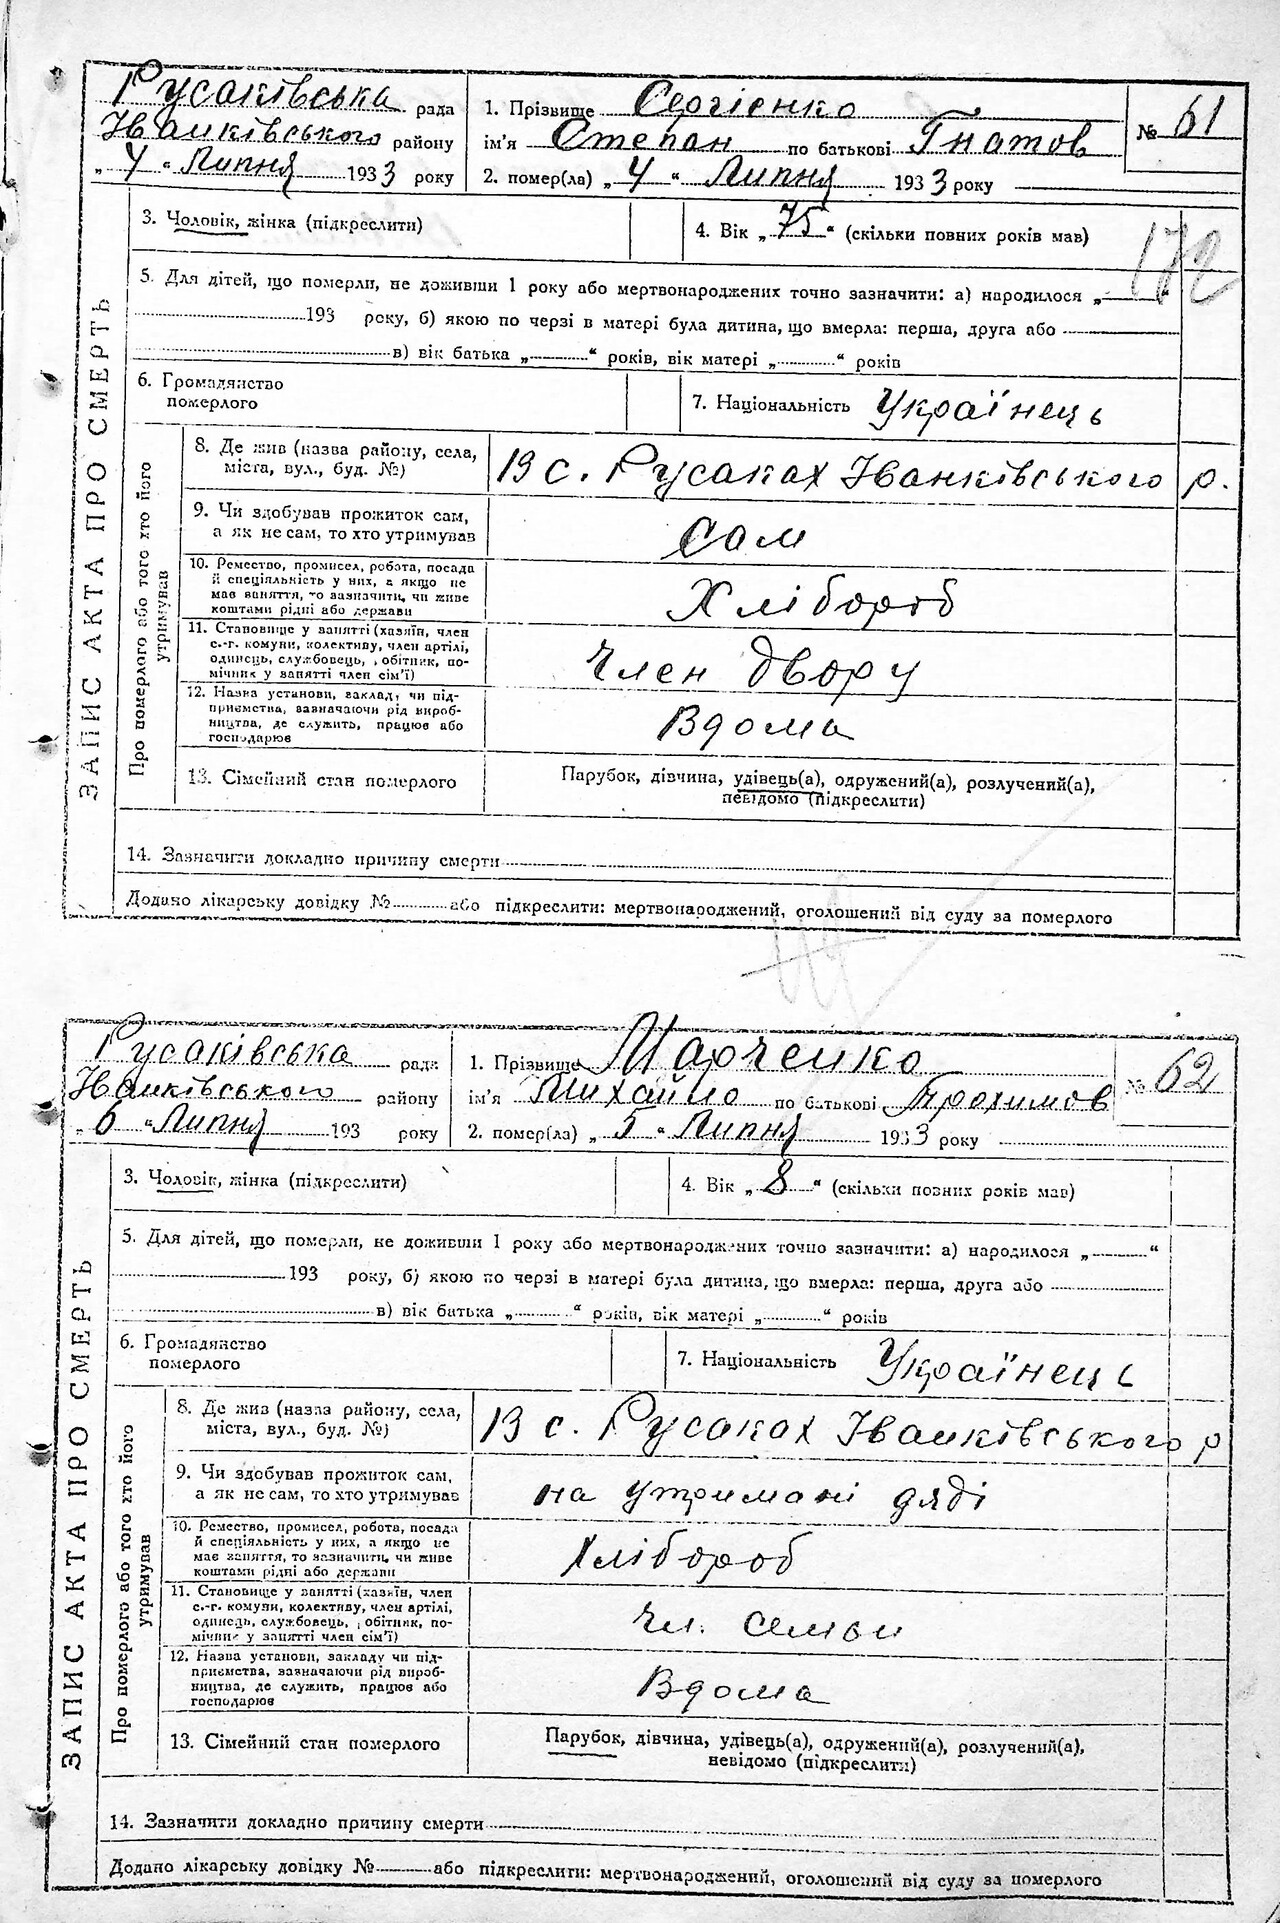 Русаківська рада
Іванківського району
„4“ Липня 1933 року
1. Прізвище Сергієнко
ім'я Степан по батькові Гнатов
2. помер(ла) „4“ Липня 1933 року
№ 61
3. Чоловік, жінка (підкреслити)
4. Вік „75“ (скільки повних років мав)
172
5. Для дітей, що померли, не доживши 1 року або мертвонароджених точно зазначити: а) народилося „ “
193 року, б) якою по черзі в матері була дитина, що вмерла: перша, друга або
в) вік батька „ “ років, вік матері „ “ років
6. Громадянство
померлого
7. Національність Українець
ЗАПИС АКТА ПРО СМЕРТЬ
Про померлого або того хто його
утримував
8. Де жив (назва району, села,
міста, вул., буд. №)
В с. Русаках Іванківського р.
9. Чи здобував прожиток сам,
а як не сам, то хто утримував
Сам
10. Ремество, промисел, робота, посада
й спеціяльність у них, а якщо не
має заняття, то зазначити, чи живе
коштами рідні або держави
Хлібороб
11. Становище у занятті (хазяїн, член
с.-г. комуни, колективу, член артілі,
одинець, службовець, обітник, по-
мічник у занятті член сім'ї)
Член двору
12. Назва установи, закладу чи під-
приємства, зазначаючи рід вироб-
ництва, де служить, працює або
господарює
Вдома
13. Сімейний стан померлого
Парубок, дівчина, удівець(а), одружений(а), розлучений(а),
невідомо (підкреслити)
14. Зазначити докладно причину смерти
Додано лікарську довідку № або підкреслити: мертвонароджений, оголошений від суду за померлого
Русаківська рада
Іванківського району
„6“ Липня 193 року
1. Прізвище Марченко
ім'я Михайло по батькові Трохимов
2. помер(ла) „5“ Липня 1933 року
№ 62
3. Чоловік, жінка (підкреслити)
4. Вік „8“ (скільки повних років мав)
5. Для дітей, що померли, не доживши 1 року або мертвонароджених точно зазначити: а) народилося „ “
193 року, б) якою по черзі в матері була дитина, що вмерла: перша, друга або
в) вік батька „ “ років, вік матері „ “ років
6. Громадянство
померлого
7. Національність Українець
ЗАПИС АКТА ПРО СМЕРТЬ
Про померлого або того хто його
утримував
8. Де жив (назва району, села,
міста, вул., буд. №)
В с. Русаках Іванківського р
9. Чи здобував прожиток сам,
а як не сам, то хто утримував
на утримані дяді
10. Ремество, промисел, робота, посада
й спеціяльність у них, а якщо не
має заняття, то зазначити, чи живе
коштами рідні або держави
Хлібороб
11. Становище у занятті (хазяїн, член
с.-г. комуни, колективу, член артілі,
одинець, службовець, обітник, по-
мічник у занятті член сім'ї)
Чл. семьи
12. Назва установи, закладу чи під-
приємства, зазначаючи рід вироб-
ництва, де служить, працює або
господарює
Вдома
13. Сімейний стан померлого
Парубок, дівчина, удівець(а), одружений(а), розлучений(а),
невідомо (підкреслити)
14. Зазначити докладно причину смерти
Додано лікарську довідку № або підкреслити: мертвонароджений, оголошений від суду за померлого